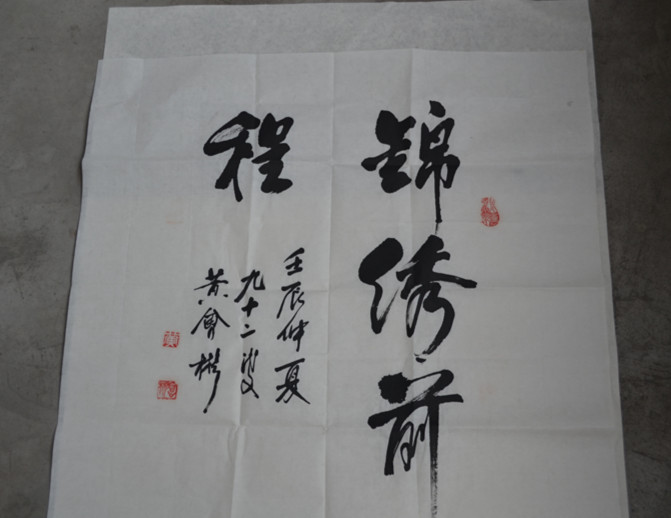 錦绣前
程
壬辰仲夏
九十二叟
黄會彬